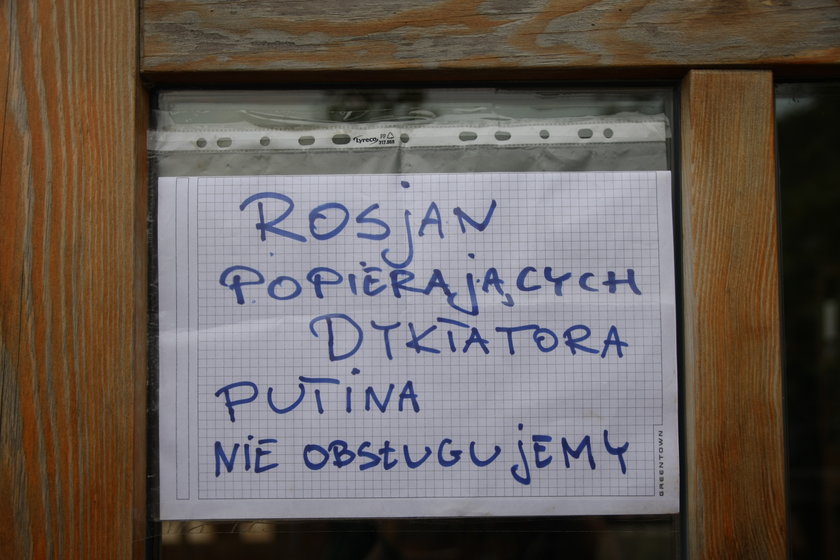 Lyreco PP
317.868
ROSjAN
POPIERAjĄCYCH
DYKTATORA
PUTiNA
NiE OBSŁUGUjEMY
GREENTOWN